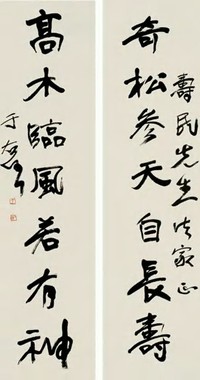 壽民先生法家正
奇松参天自長壽
髙木臨風若有神
于右任